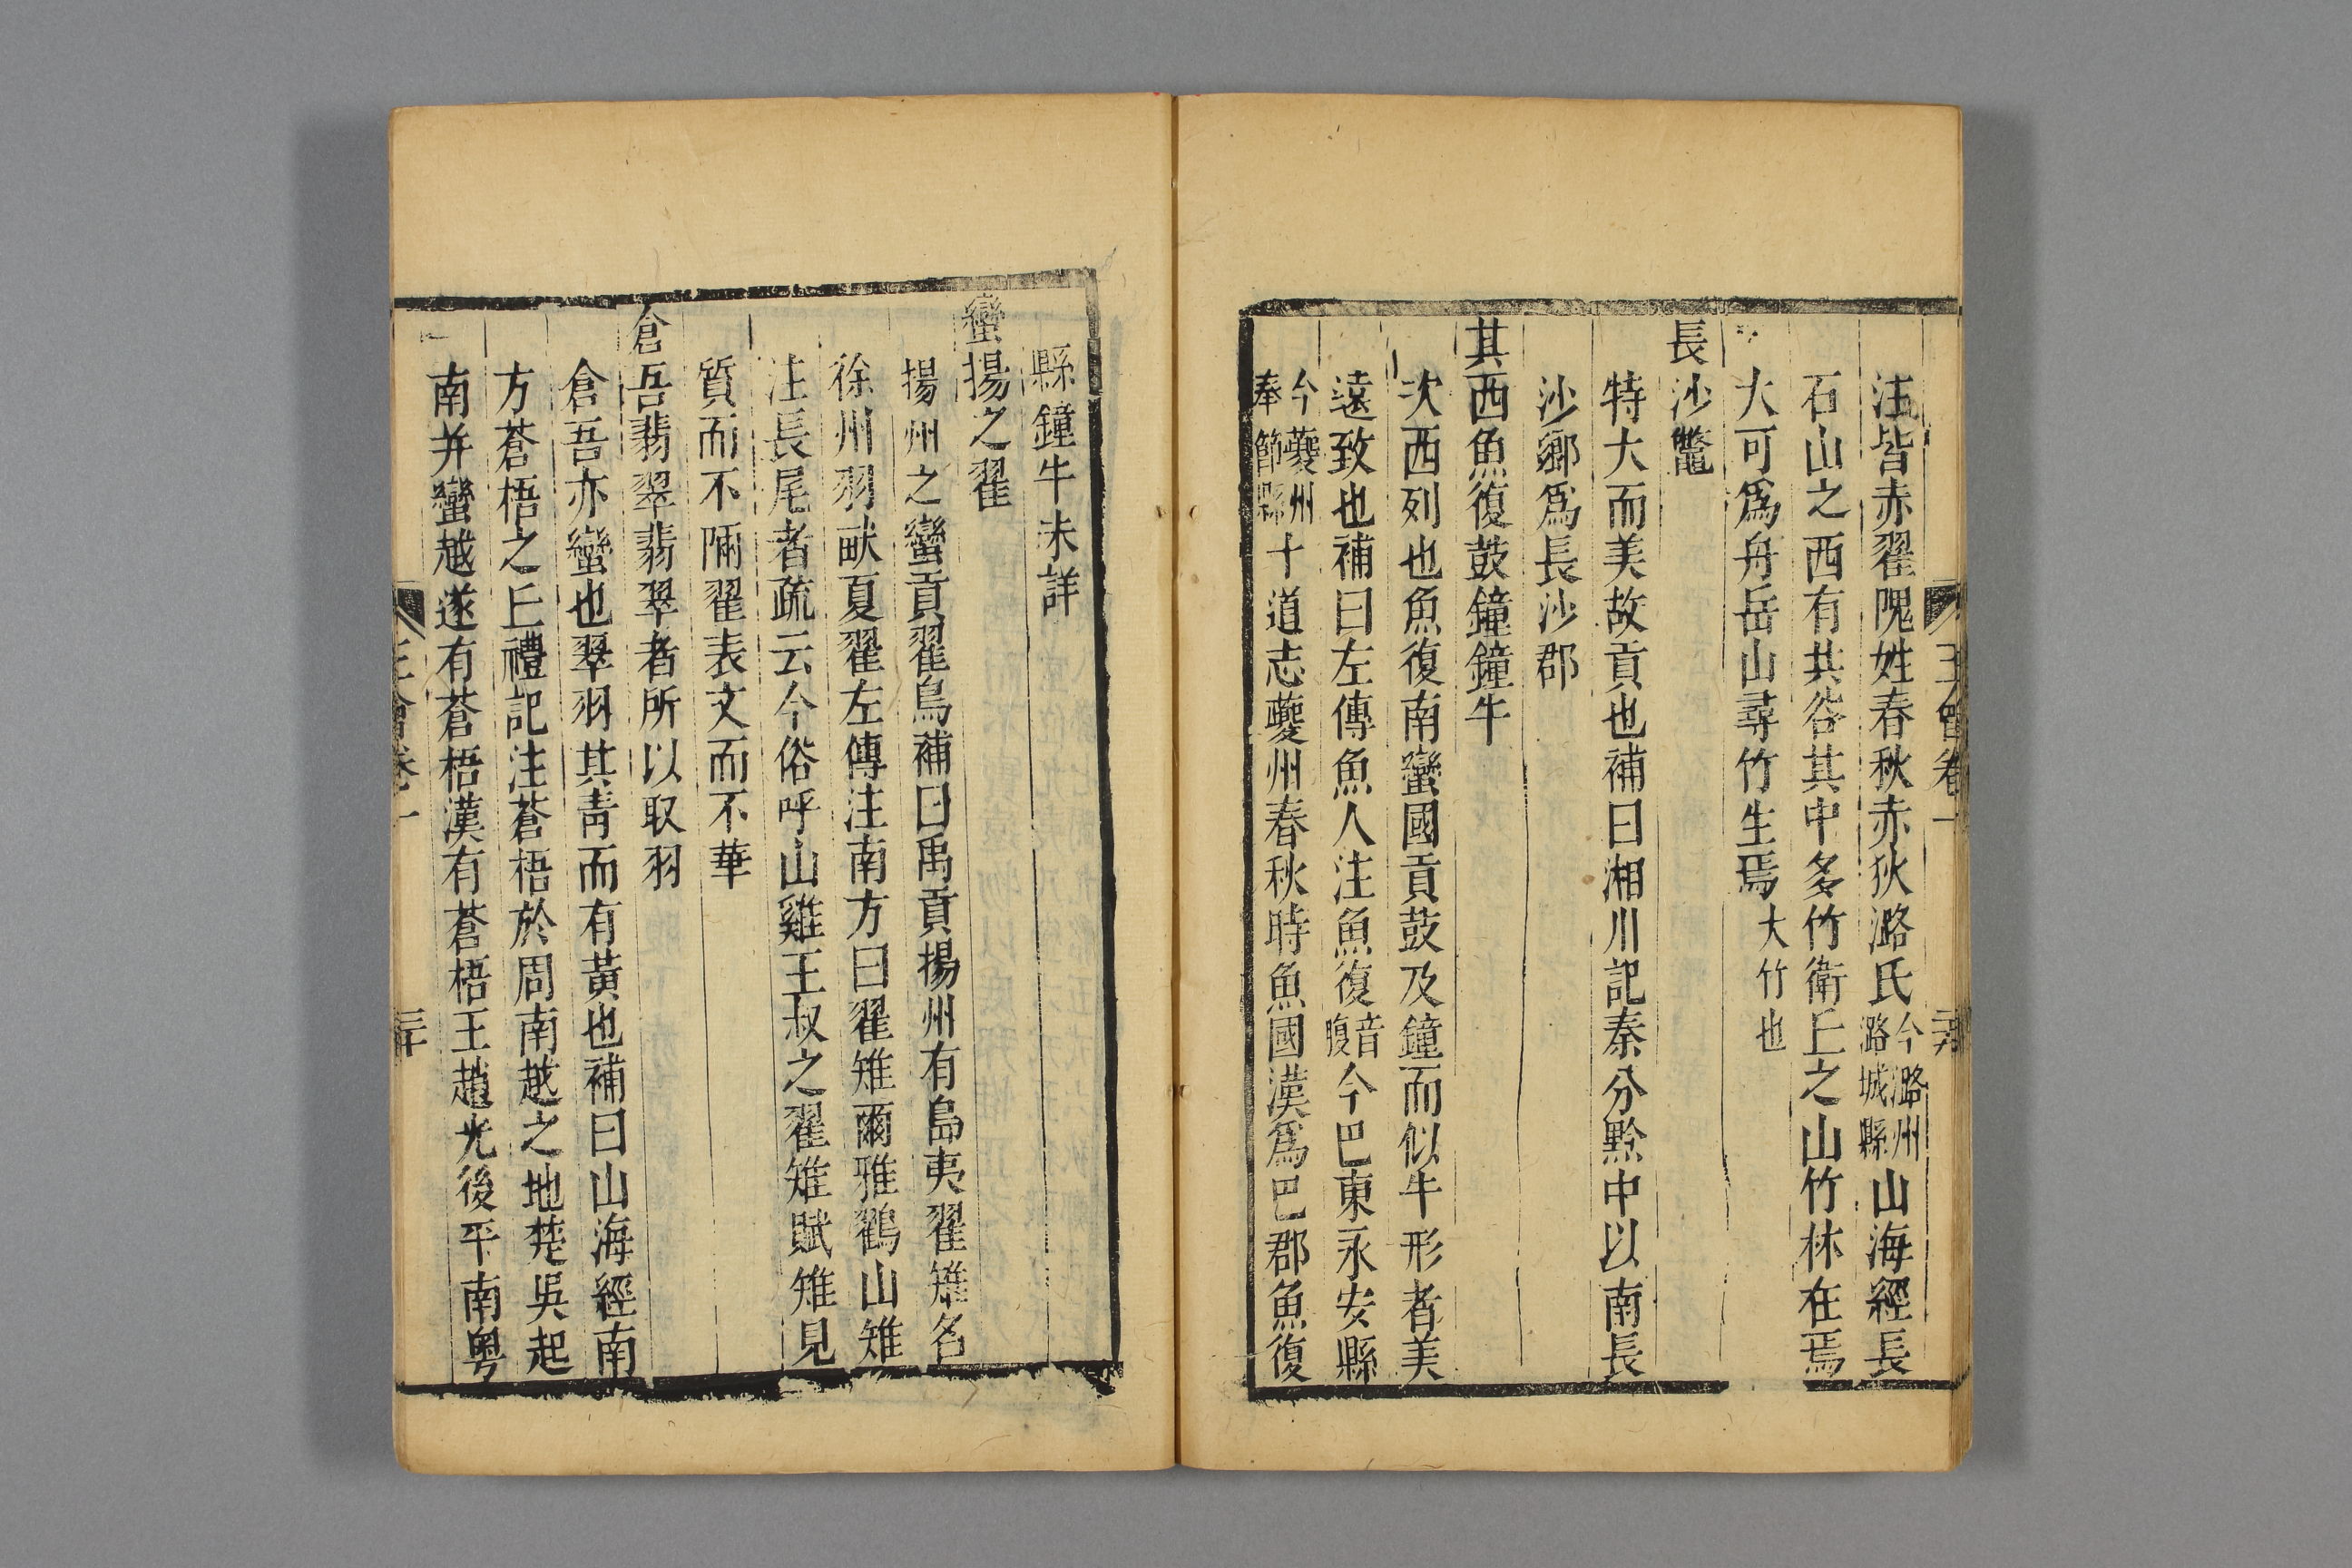 王會卷一
注皆赤翟隗姓春秋赤狄潞氏今潞州潞城縣山海經長
石山之西有共谷其中多竹衛丘之山竹林在焉
大可爲舟岳山尋竹生焉大竹也
長沙鼈
特大而美故貢也補曰湘川記秦分黔中以南長
沙鄉爲長沙郡
其西魚復鼓鐘鐘牛
次西列也魚復南蠻國貢鼓及鐘而似牛形者美
遠致也補曰左傳魚人注魚復音腹今巴東永安縣
今夔州奉節縣十道志夔州春秋時魚國漢爲巴郡魚復
縣鐘牛未詳
蠻揚之翟
揚州之蠻貢翟鳥補曰禹貢揚州有島夷翟雉名
徐州羽畎夏翟左傳注南方曰翟雉爾雅鸐山雉
注長尾者疏云今俗呼山雞王叔之翟雉賦雉見
質而不陋翟表文而不華
倉吾翡翠翡翠者所以取羽
倉吾亦蠻也翠羽其青而有黃也補曰山海經南
方蒼梧之丘禮記注蒼梧於周南越之地楚吳起
南并蠻越遂有蒼梧漢有蒼梧王趙光後平南粵
王會卷一
三十